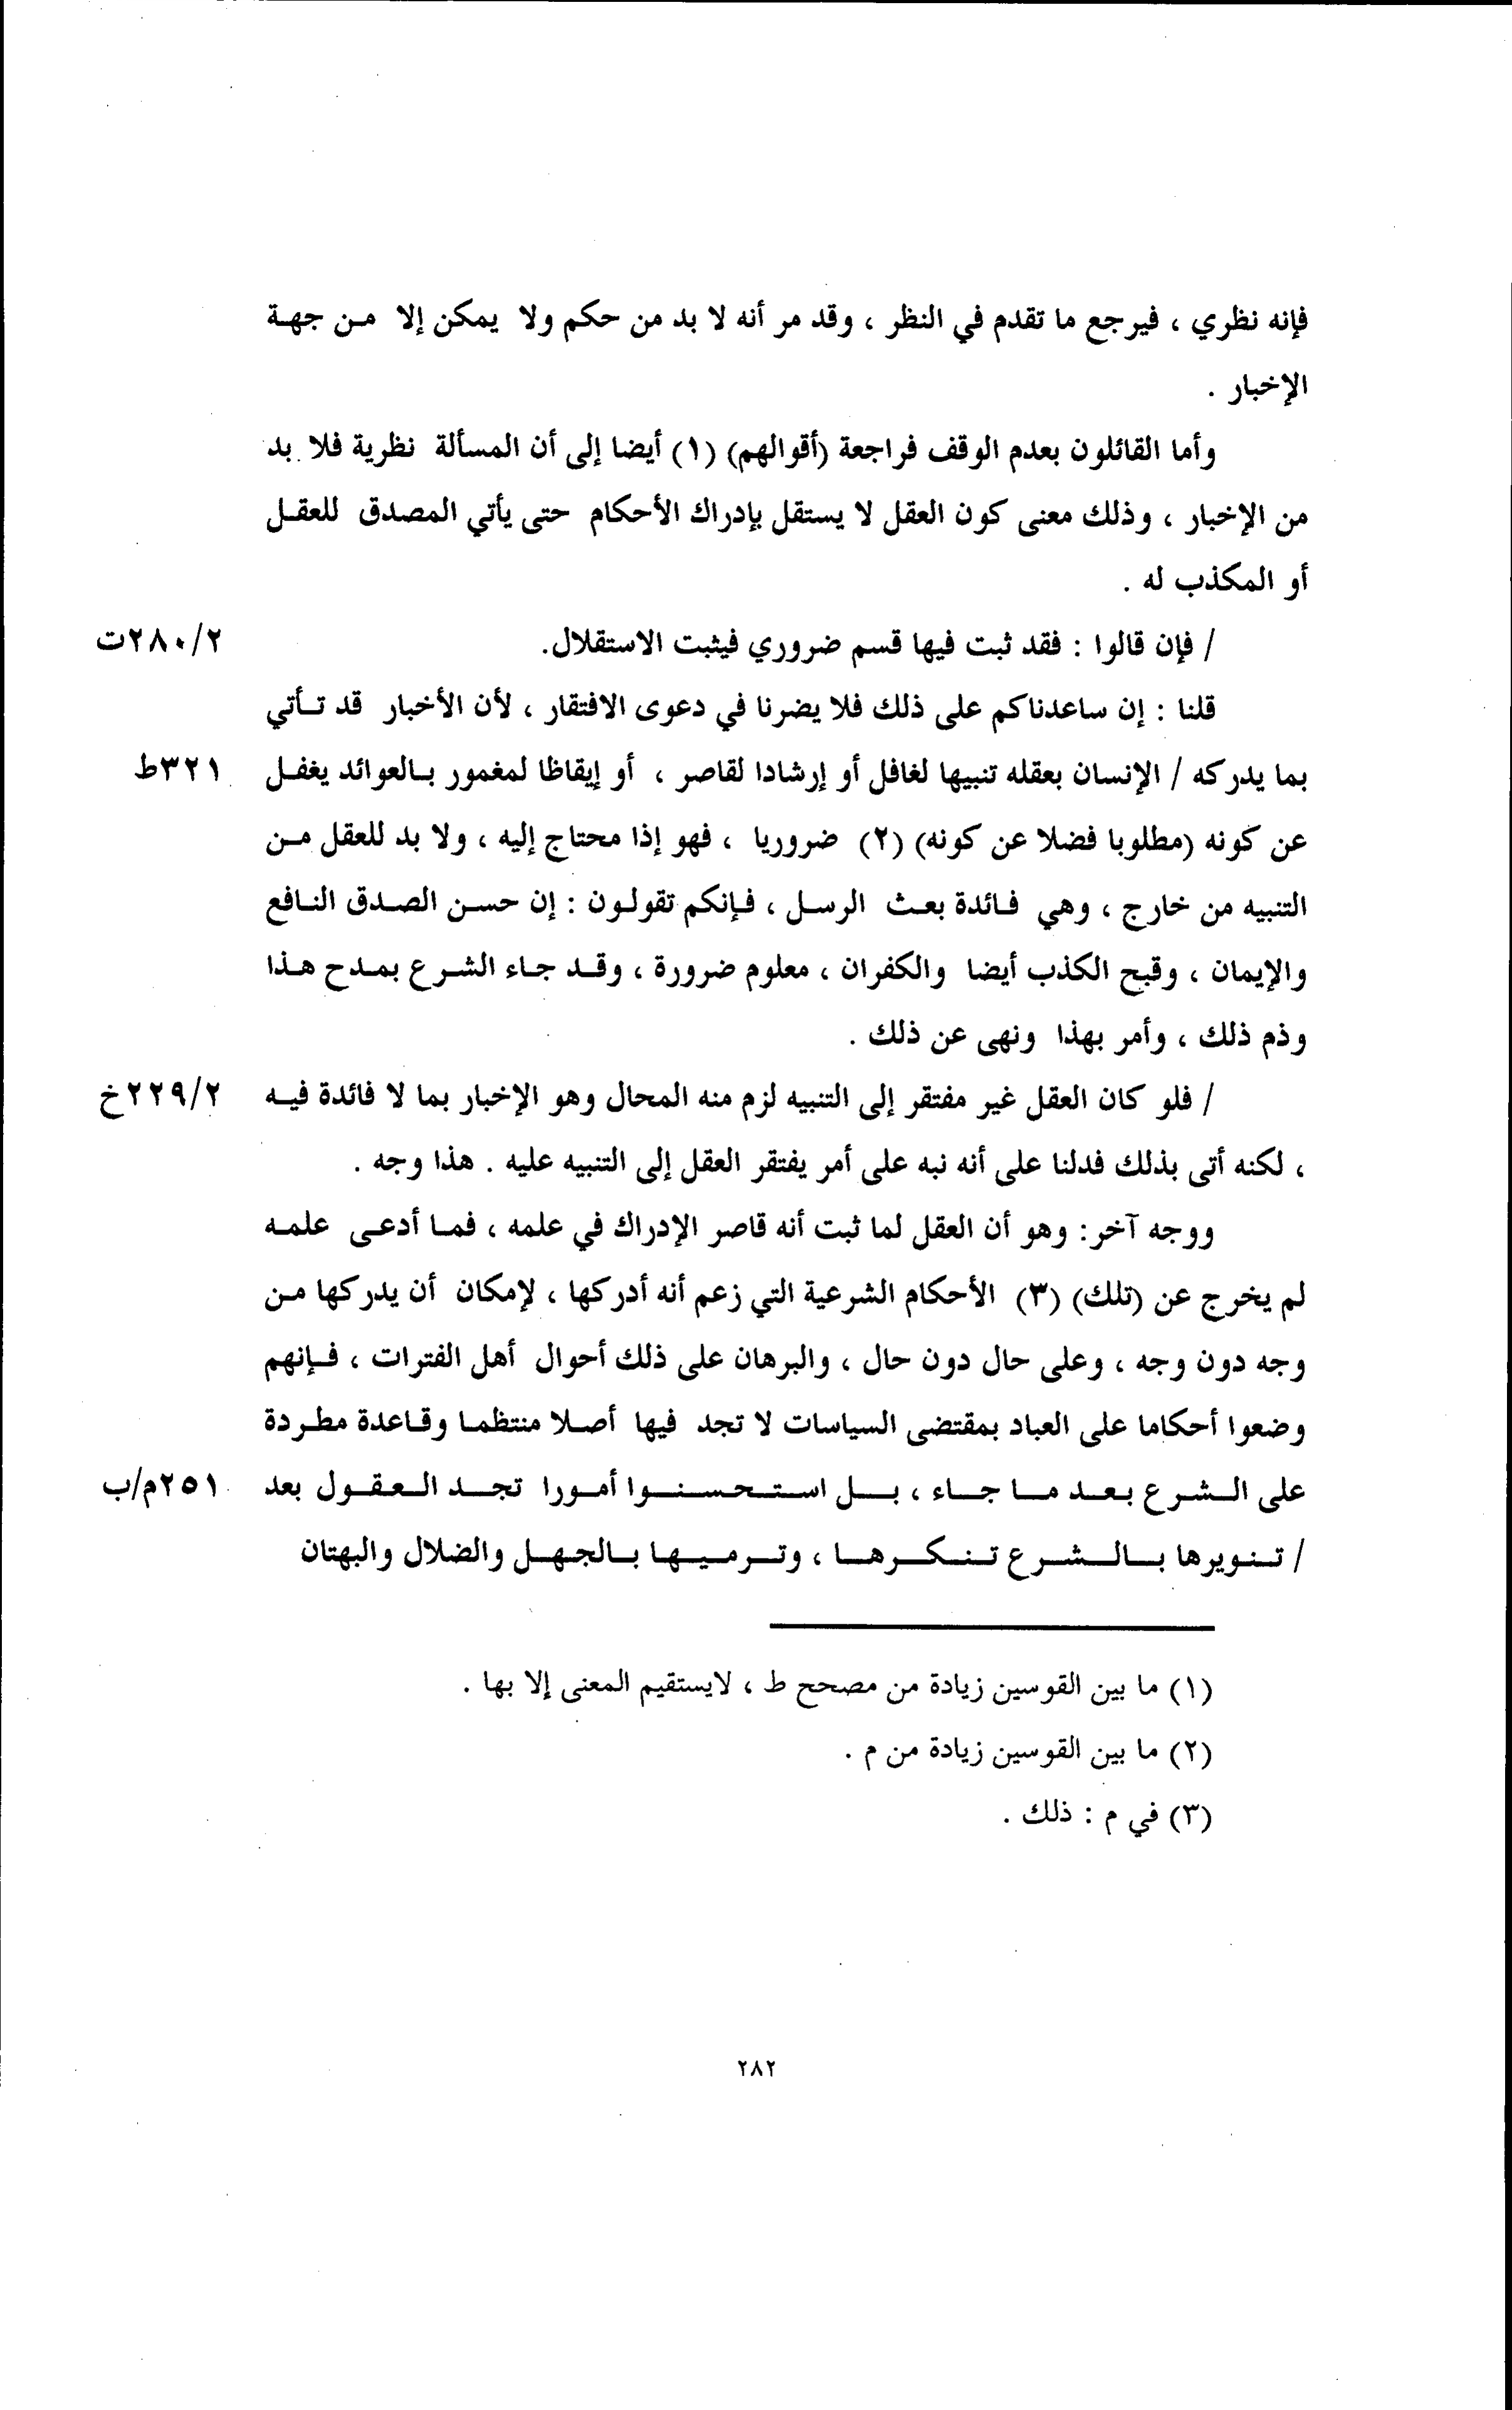 فإنه نظري ، فيرجع ما تقدم في النظر ، وقد مر أنه لا بد من حكم ولا يمكن إلا من جهة
الإخبار .
وأما القائلون بعدم الوقف فراجعة (أقوالهم) (١) أيضا إلى أن المسألة نظرية فلا بد
من الإخبار ، وذلك معنى كون العقل لا يستقل بإدراك الأحكام حتى يأتي المصدق للعقل
أو المكذب له .
/ فإن قالوا : فقد ثبت فيها قسم ضروري فيثبت الاستقلال. ٢/٢٨٠ت
قلنا : إن ساعدناكم على ذلك فلا يضرنا في دعوى الافتقار ، لأن الأخبار قد تأتي
بما يدركه / الإنسان بعقله تنبيها لغافل أو إرشادا لقاصر ، أو إيقاظا لمغمور بالعوائد يغفل ٣٢١ط
عن كونه (مطلوبا فضلا عن كونه) (٢) ضروريا ، فهو إذا محتاج إليه ، ولا بد للعقل من
التنبيه من خارج ، وهي فائدة بعث الرسل ، فإنكم تقولون : إن حسن الصدق النافع
والإيمان ، وقبح الكذب أيضا والكفران ، معلوم ضرورة ، وقد جاء الشرع بمدح هذا
وذم ذلك ، وأمر بهذا ونهى عن ذلك .
/ فلو كان العقل غير مفتقر إلى التنبيه لزم منه المحال وهو الإخبار بما لا فائدة فيه ٢/٢٢٩خ
، لكنه أتى بذلك فدلنا على أنه نبه على أمر يفتقر العقل إلى التنبيه عليه . هذا وجه .
ووجه آخر: وهو أن العقل لما ثبت أنه قاصر الإدراك في علمه ، فما أدعى علمه
لم يخرج عن (تلك) (٣) الأحكام الشرعية التي زعم أنه أدركها ، لإمكان أن يدركها من
وجه دون وجه ، وعلى حال دون حال ، والبرهان على ذلك أحوال أهل الفترات ، فإنهم
وضعوا أحكاما على العباد بمقتضى السياسات لا تجد فيها أصلا منتظما وقاعدة مطردة
على الشرع بعد ما جاء ، بل استحسنوا أمورا تجد العقول بعد ٢٥١م/ب
/ تنويرها بالشرع تنكرها ، وترميها بالجهل والضلال والبهتان
(١) ما بين القوسين زيادة من مصحح ط ، لايستقيم المعنى إلا بها .
(٢) ما بين القوسين زيادة من م .
(٣) في م : ذلك .
٢٨٢